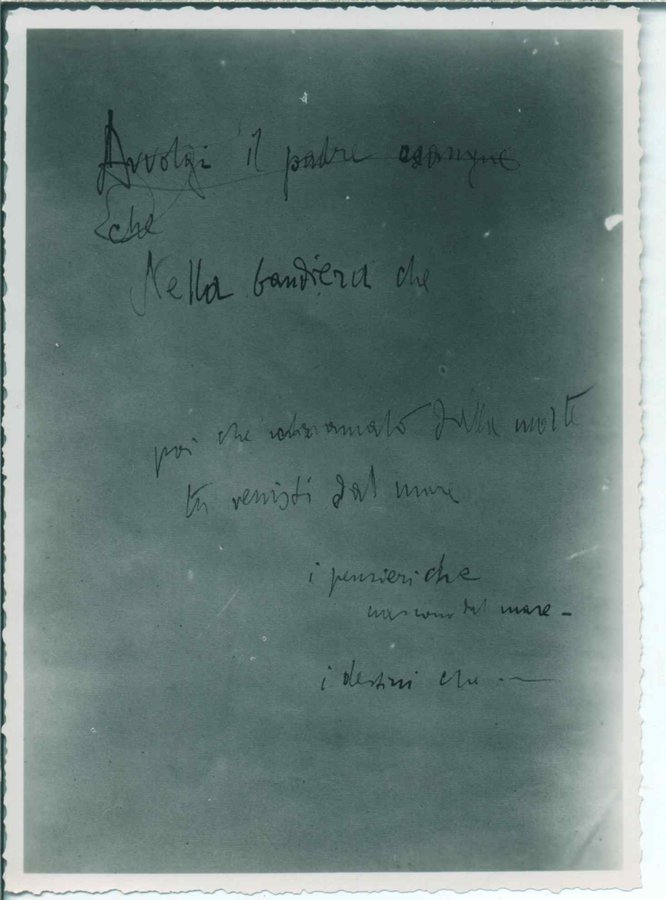 Avvolgi il padre esangue
che
Nella bandiera che
poi che richiamato dalla morte
tu venisti dal mare
i pensieri che
nascono dal mare -
i destini che ...